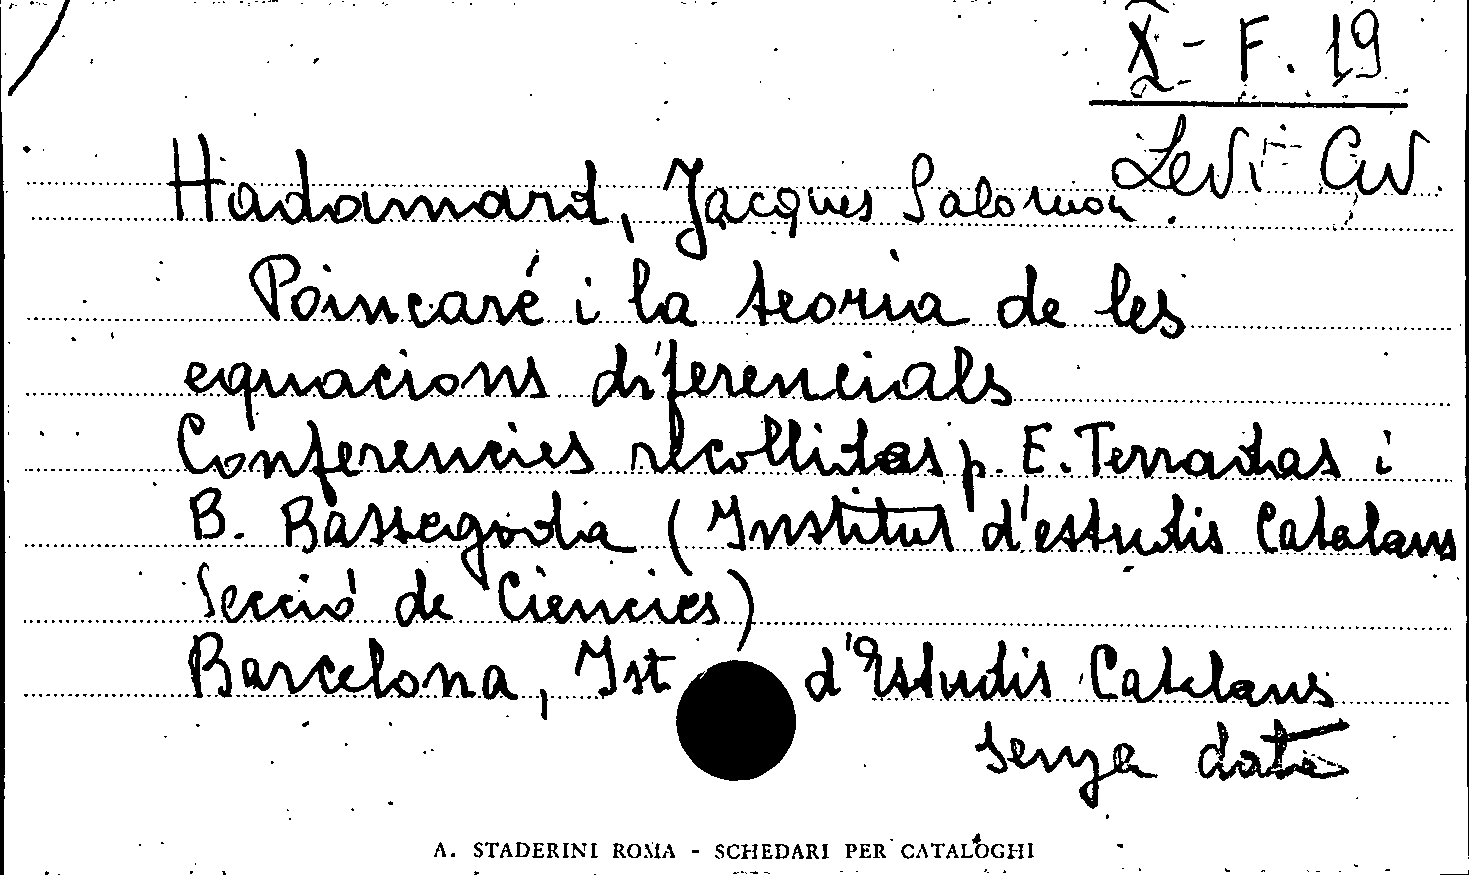 X - F. 19
Levi-Civ.
Hadamard, Jacques Salomon.
Poincaré i la teoria de les
equacions diferencials
Conferencies recollidas p. E. Terradas i
B. Bassegoda (Institut d'estudis Catalans
Secció de Ciencies)
Barcelona, Ist d'Estudis Catalans
senza data
A. STADERINI ROMA - SCHEDARI PER CATALOGHI